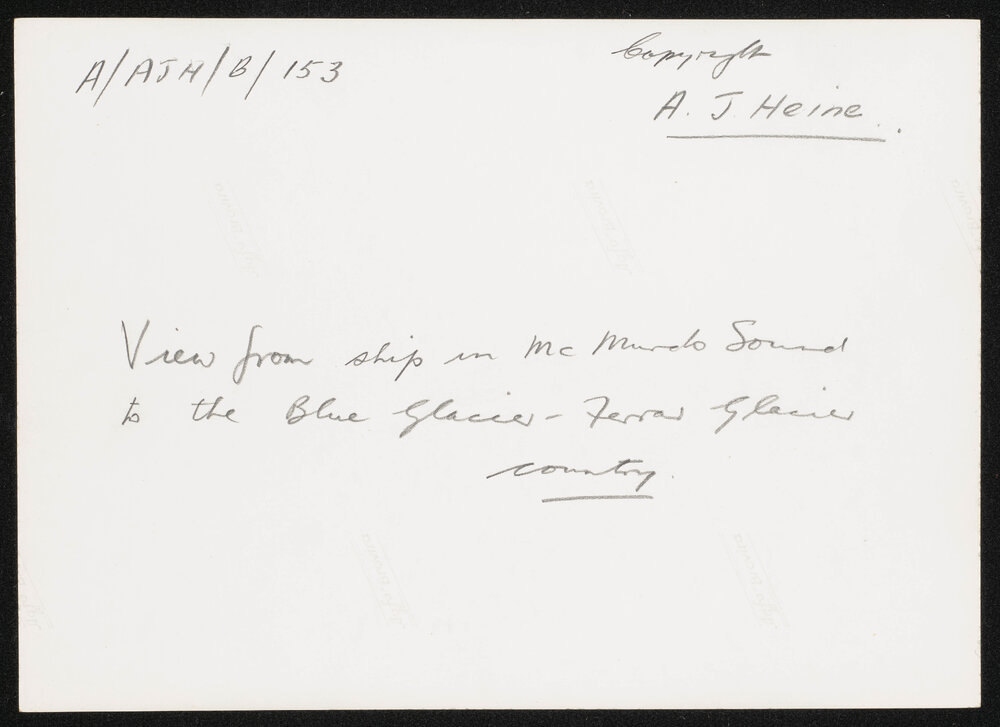 A/AJH/B/153
Copyright
A. J. Heine.
View from ship in Mc Murdo Sound
to the Blue Glacier - Ferrar Glacier
country.